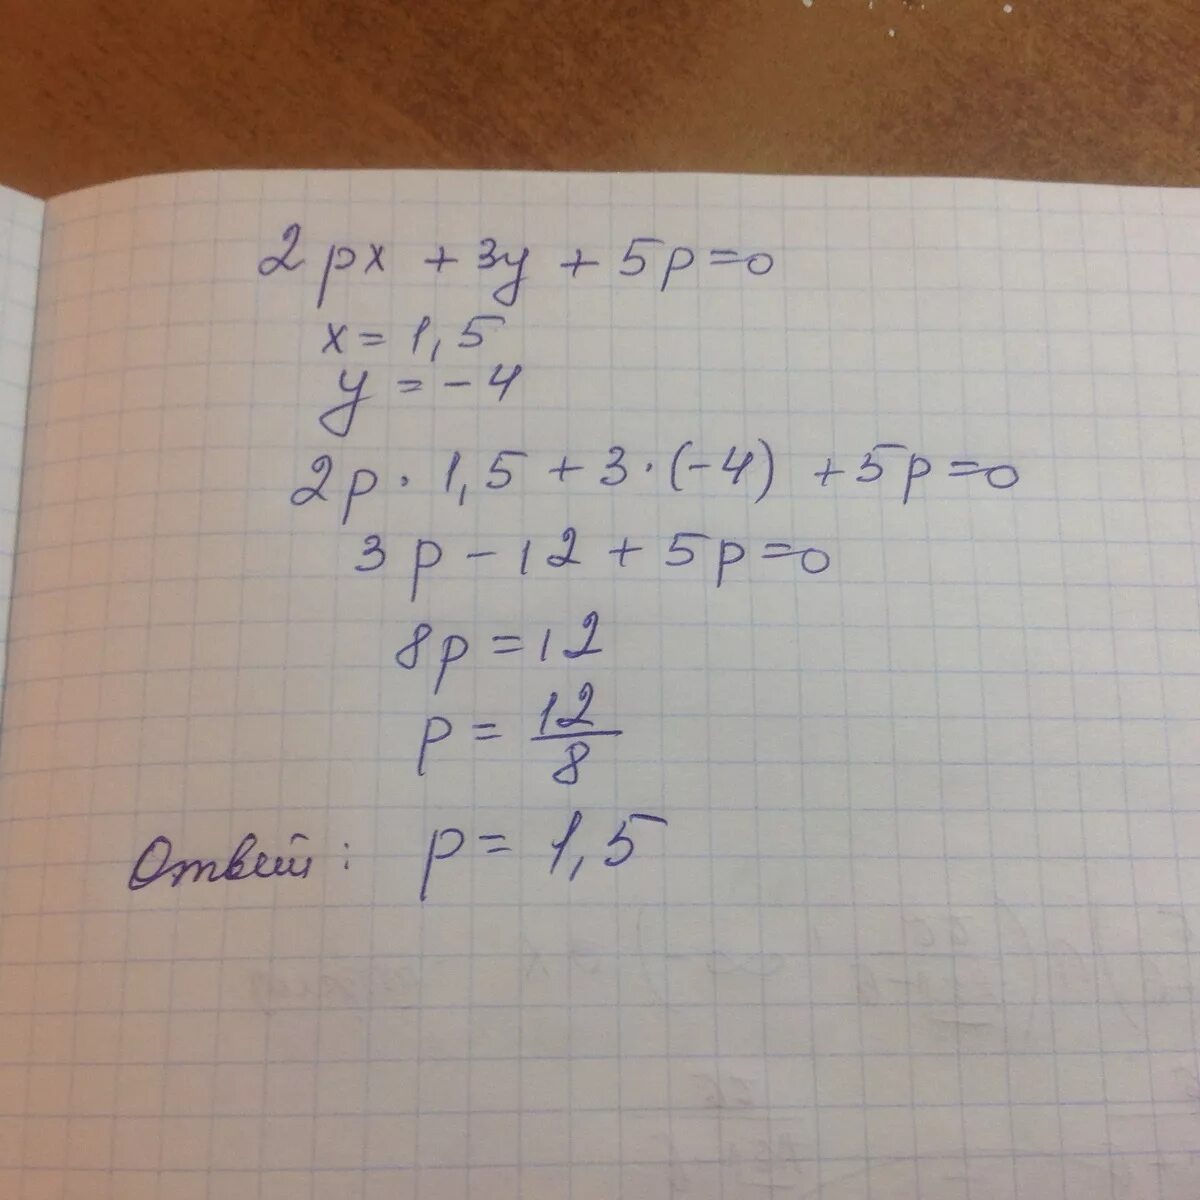 2px + 3y + 5p=0
x = 1,5
y = -4
2p · 1,5 + 3 · (-4) + 5p=0
3p - 12 + 5p=0
8p = 12
p = 12/8
Ответ: p = 1,5